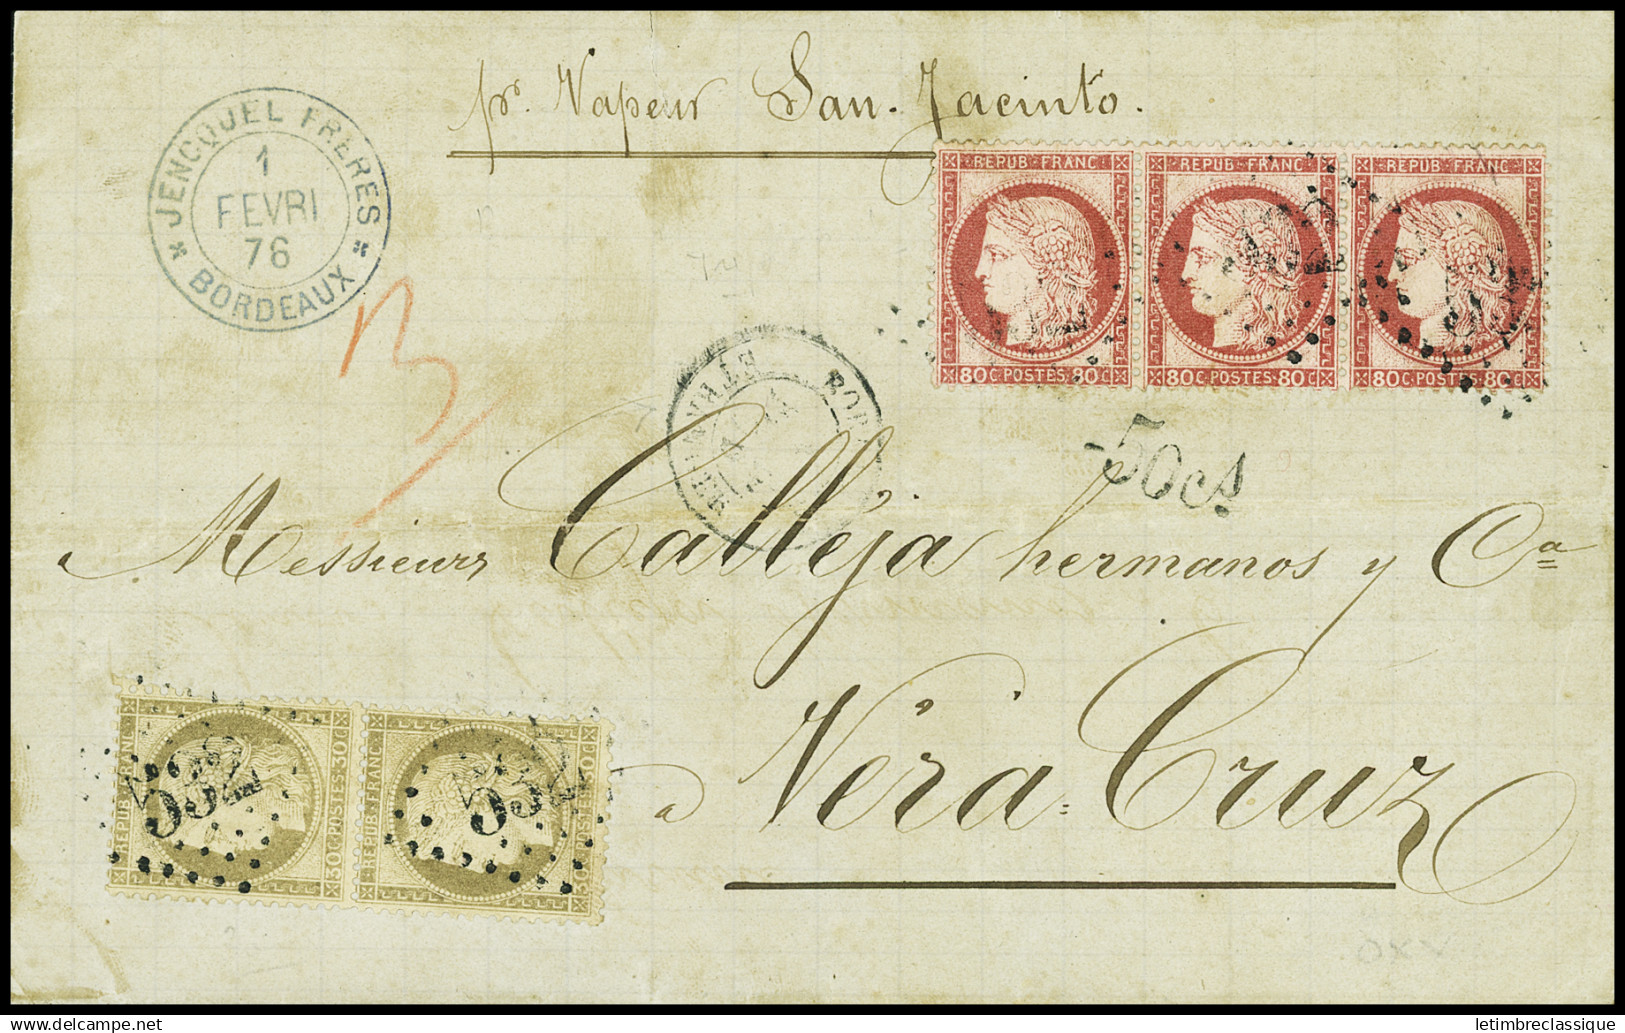 pr. Vapeur San-Jacinto.
JENCQUEL FRERES
1
FEVRI
76
* BORDEAUX *
REPUB·FRANC REPUB·FRANC REPUB·FRANC
80C·POSTES·80C 80C·POSTES·80C 80C·POSTES·80C
3
50cs
Messieurs Calleja hermanos y Ca
REPUB·FRANC 30C·POSTES·30C REPUB·FRANC 30C·POSTES·30C
532 532
a Véra=Cruz
delcampe.net
letimbreclassique